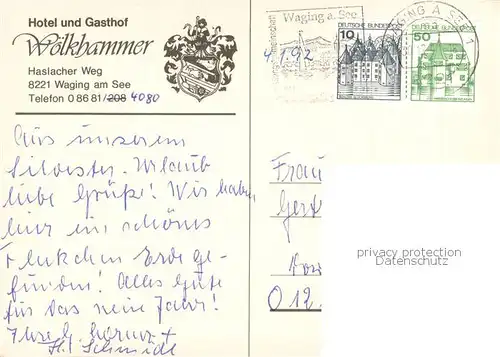 Hotel und Gasthof
Wölkhammer
Haslacher Weg
8221 Waging am See
Telefon 0 86 81/208 4080
Waging a. See
4.1.92
DEUTSCHE BUNDESPOST
10
DEUTSCHE BUNDESPOST
50
WAGING A SEE 1
Aus unserem
Silvester-Urlaub
liebe Grüße! Wir haben
hier ein schönes
Fleckchen Erde ge-
funden! Alles Gute
für das neue Jahr!
Schmidt
Frau
O 12.
privacy protection
Datenschutz